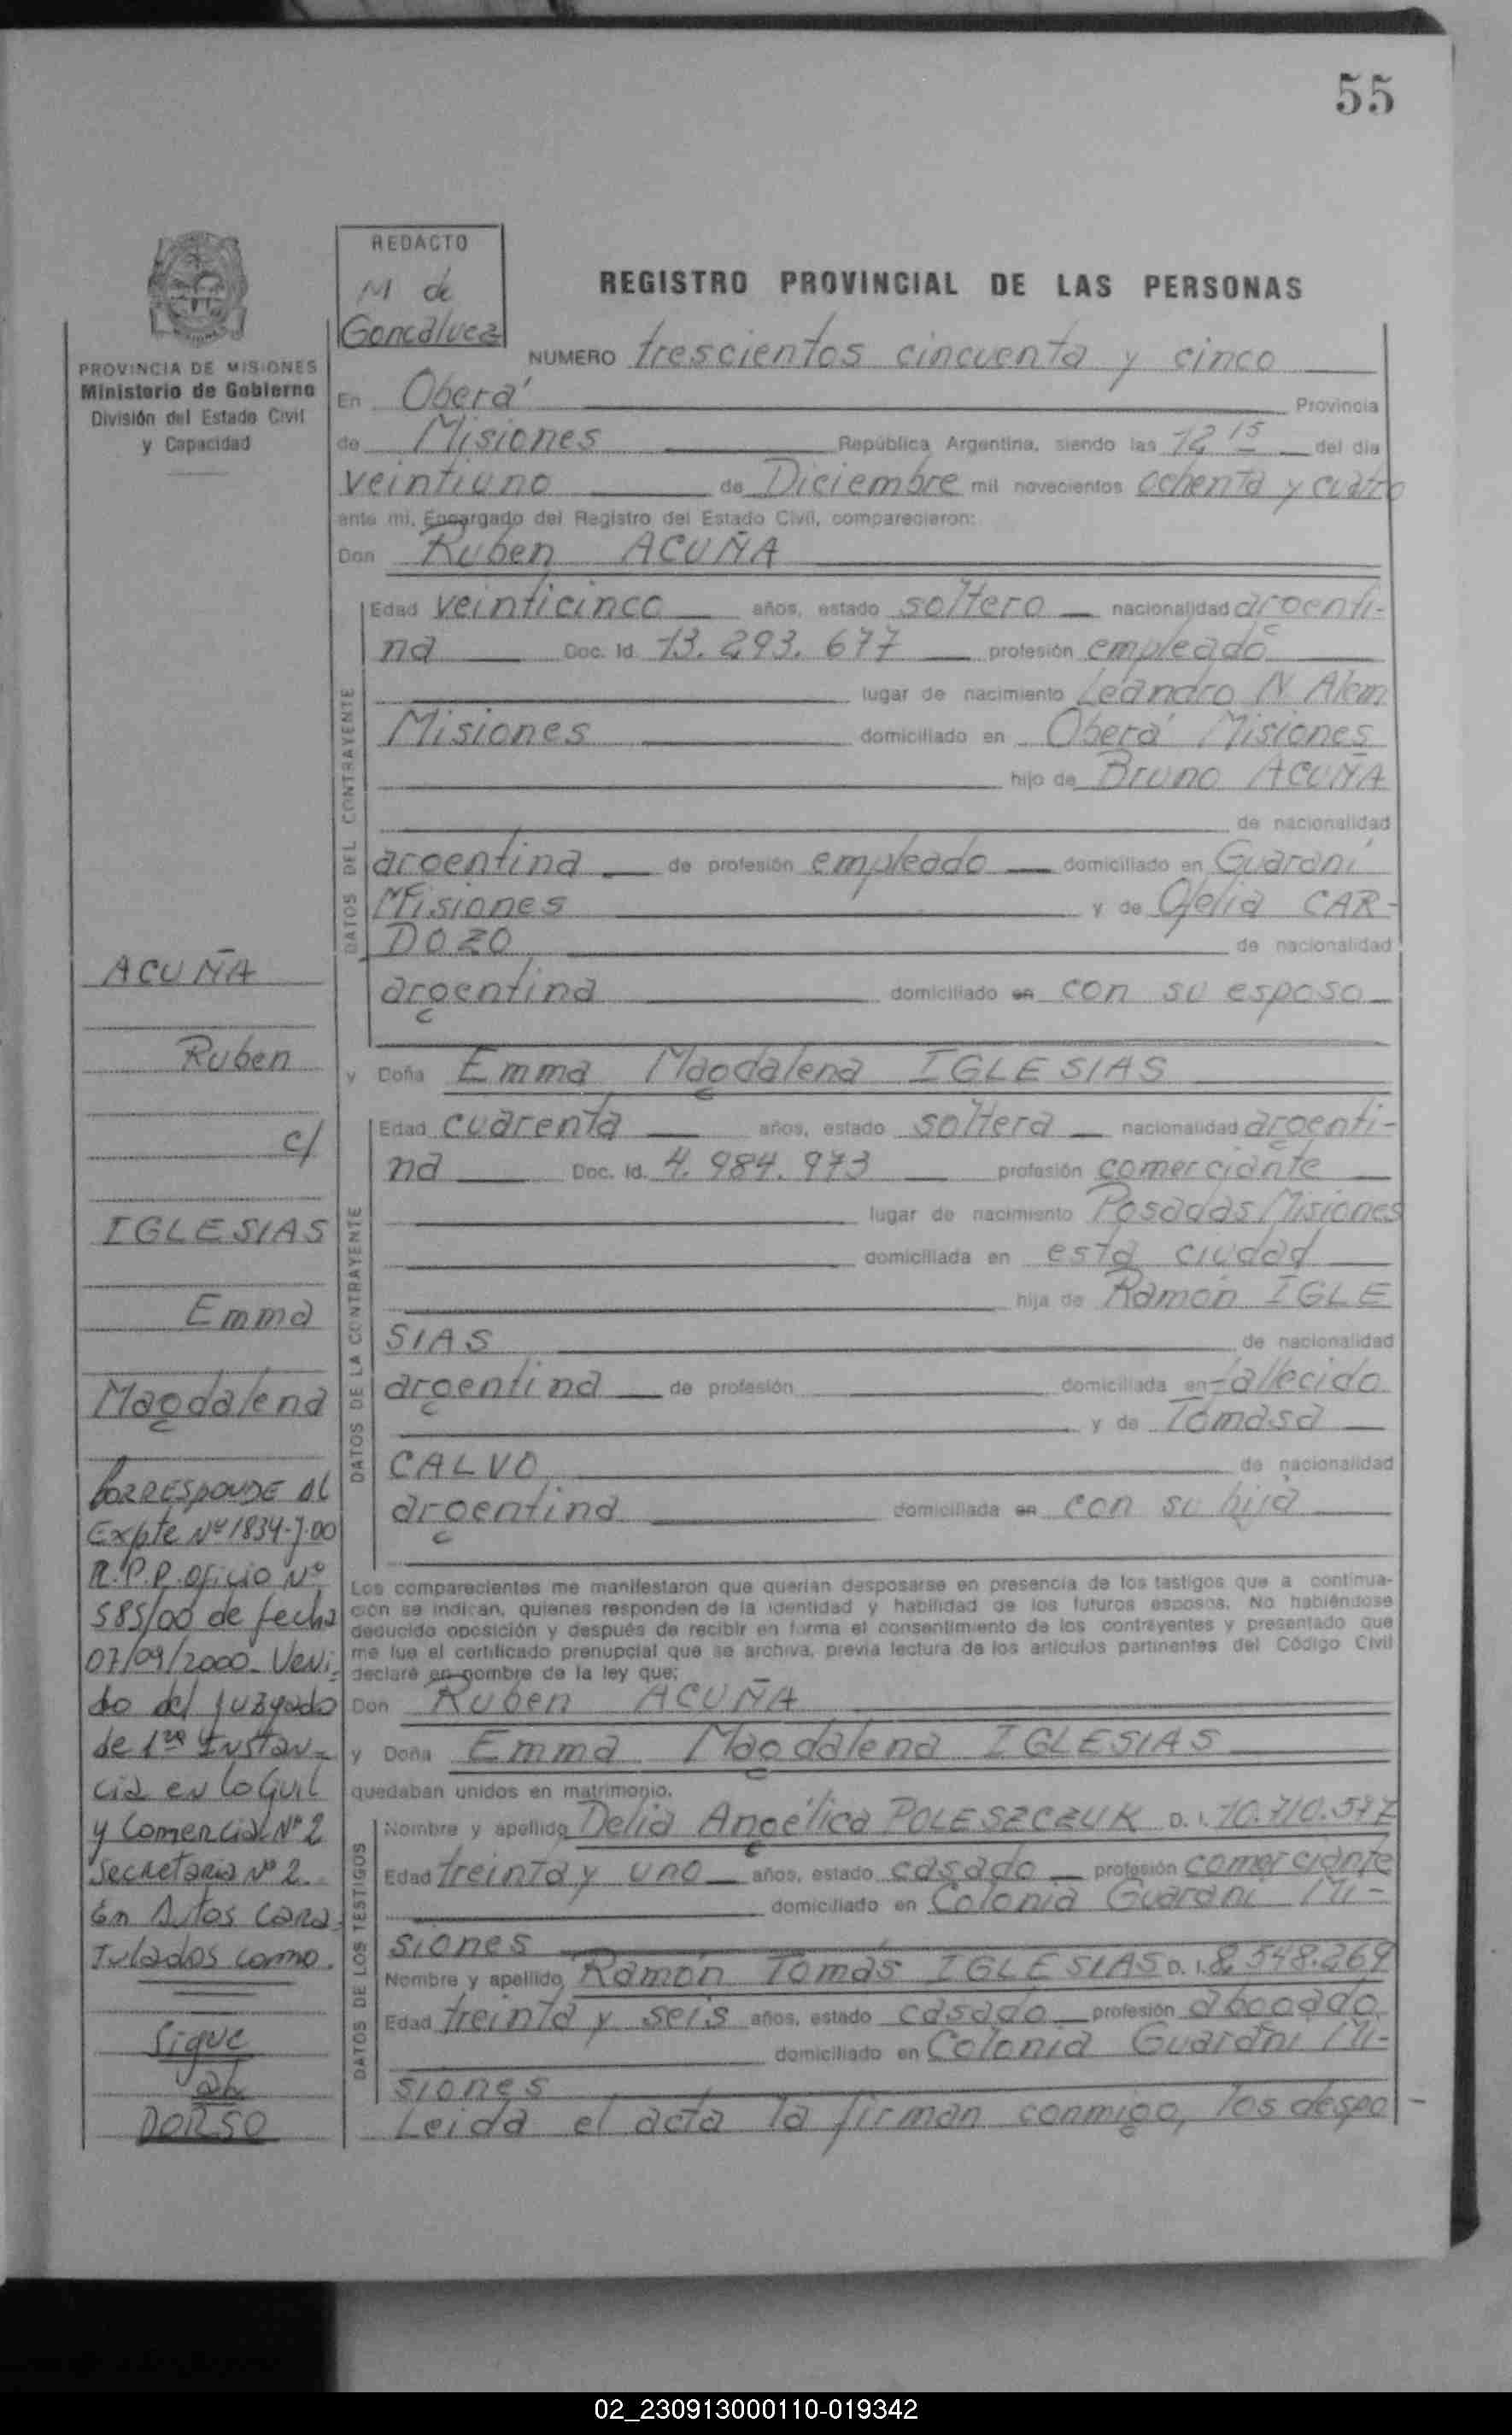 55
REDACTO
M de
Goncalvez
REGISTRO PROVINCIAL DE LAS PERSONAS
PROVINCIA DE MISIONES
Ministerio de Gobierno
División del Estado Civil
y Capacidad
NUMERO trescientos cincuenta y cinco
En Oberá Provincia
de Misiones República Argentina, siendo las 12 15 del dia
veintiuno de Diciembre mil novecientos ochenta y cuatro
ante mi, Encargado del Registro del Estado Civil, comparecieron:
Don Ruben ACUÑA
DATOS DEL CONTRAYENTE
Edad veinticinco años, estado soltero nacionalidad argenti-
na Doc. Id. 13.293.677 profesión empleado
lugar de nacimiento Leandro N. Alem
Misiones domiciliado en Oberá Misiones
hijo de Bruno ACUÑA
de nacionalidad
argentina de profesión empleado domiciliado en Guaraní
Misiones y de Ofelia CAR-
DOZO de nacionalidad
argentina domiciliado en con su esposo
y Doña Emma Magdalena IGLESIAS
DATOS DE LA CONTRAYENTE
Edad cuarenta años, estado soltera nacionalidad argenti-
na Doc. Id. 4.984.973 profesión comerciante
lugar de nacimiento Posadas Misiones
domiciliada en esta ciudad
hija de Ramón IGLE
SIAS de nacionalidad
argentina de profesión domiciliada en fallecido
y de Tomasa
CALVO de nacionalidad
argentina domiciliada en con su hija
Los comparecientes me manifestaron que querían desposarse en presencia de los tastigos que a continua-
ción se indican, quienes responden de la identidad y habilidad de los futuros esposos. No habiéndose
deducido oposición y después de recibir en forma el consentimiento de los contrayentes y presentado que
me fue el certificado prenupcial que se archiva, previa lectura de los artículos partinentes del Código Civil
declaré en nombre de la ley que:
Don Ruben ACUÑA
y Doña Emma Magdalena IGLESIAS
quedaban unidos en matrimonio.
DATOS DE LOS TESTIGOS
Nombre y apellido Delia Angélica POLESZCZUK D. I. 10.710.577
Edad treinta y uno años, estado casado profesión comerciante
domiciliado en Colonia Guaraní Mi-
siones
Nombre y apellido Ramón Tomás IGLESIAS D. I. 8.548.269
Edad treinta y seis años, estado casado profesión abogado
domiciliado en Colonia Guaraní Mi-
siones
Leida el acta la firman conmigo, los despo-
ACUÑA
Ruben
c/
IGLESIAS
Emma
Magdalena
CORRESPONDE AL
Expte Nº 1834-J-00
R.P.P. oficio Nº
585/00 de fecha
07/09/2000. Veni-
do del juzgado
de 1ra Instan-
cia en lo Civil
y Comercial Nº 2
Secretaria Nº 2.
En Autos cara-
tulados como.
Sigue
al
DORSO
02_230913000110-019342